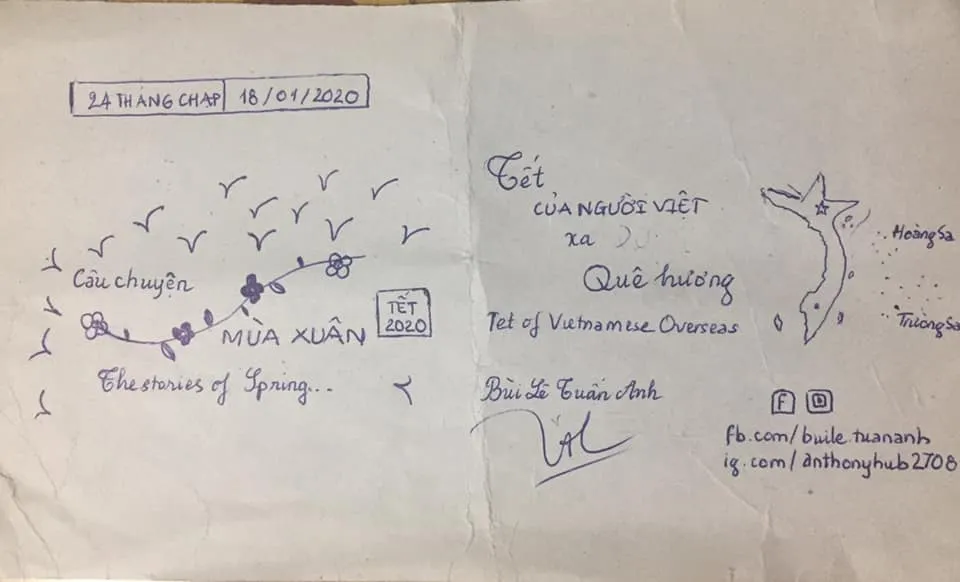 24 THÁNG CHẠP 18/01/2020
Câu chuyện
MÙA XUÂN
TẾT
2020
The stories of Spring...
Tết
CỦA NGƯỜI VIỆT
xa
Quê hương
Tet of Vietnamese Overseas
Hoàng Sa
Trường Sa
Bùi Lê Tuấn Anh
fb.com/buile.tuananh
ig.com/anthonyhub2708